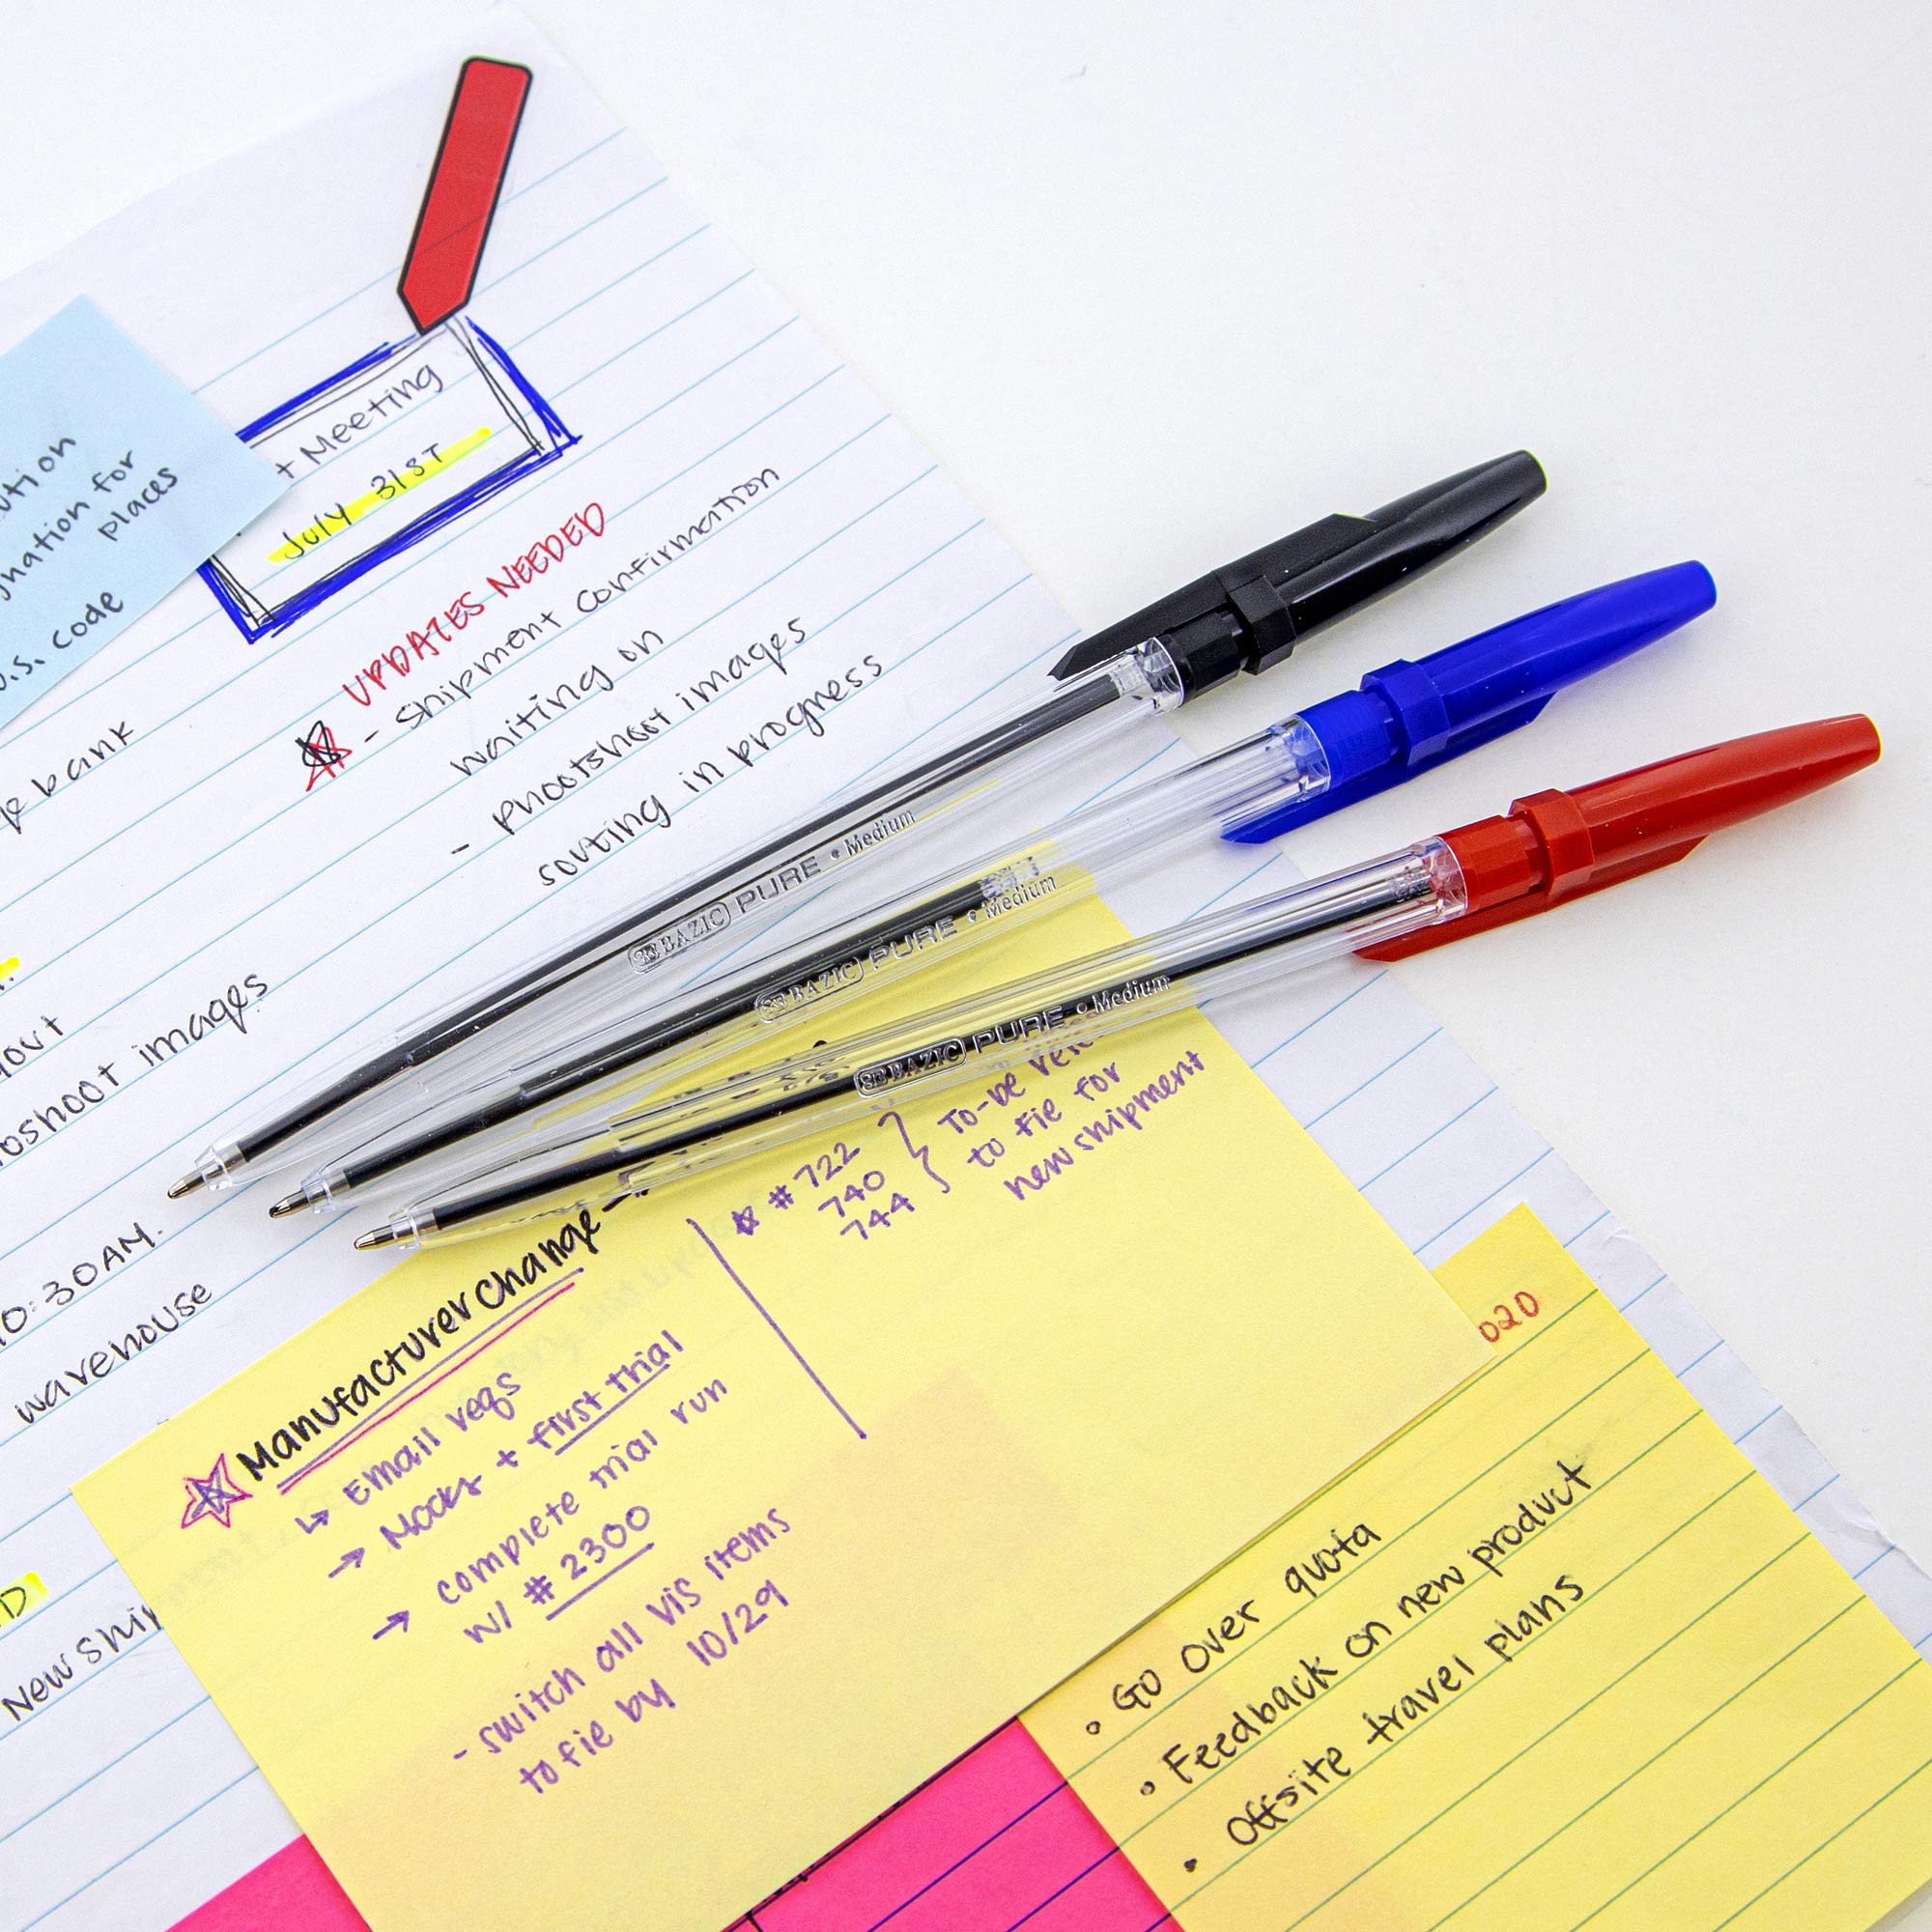 places
U.S. code
bank
+ Meeting
July 31ST
UPDATES NEEDED
- Shipment confirmation
waiting on
- Phootshoot images
sorting in progress
BAZIC PURE • Medium
BAZIC PURE • Medium
BAZIC PURE • Medium
images
warehouse
New
Manufacturer Change
↳ Email reqs
→ Mocks + first trial
→ complete trial run
w/ #2300
- switch all vis items
to fie by 10/29
#722
740
744
To-be
to fie for
new shipment
• Go over quota
• Feedback on new product
• Offsite travel plans